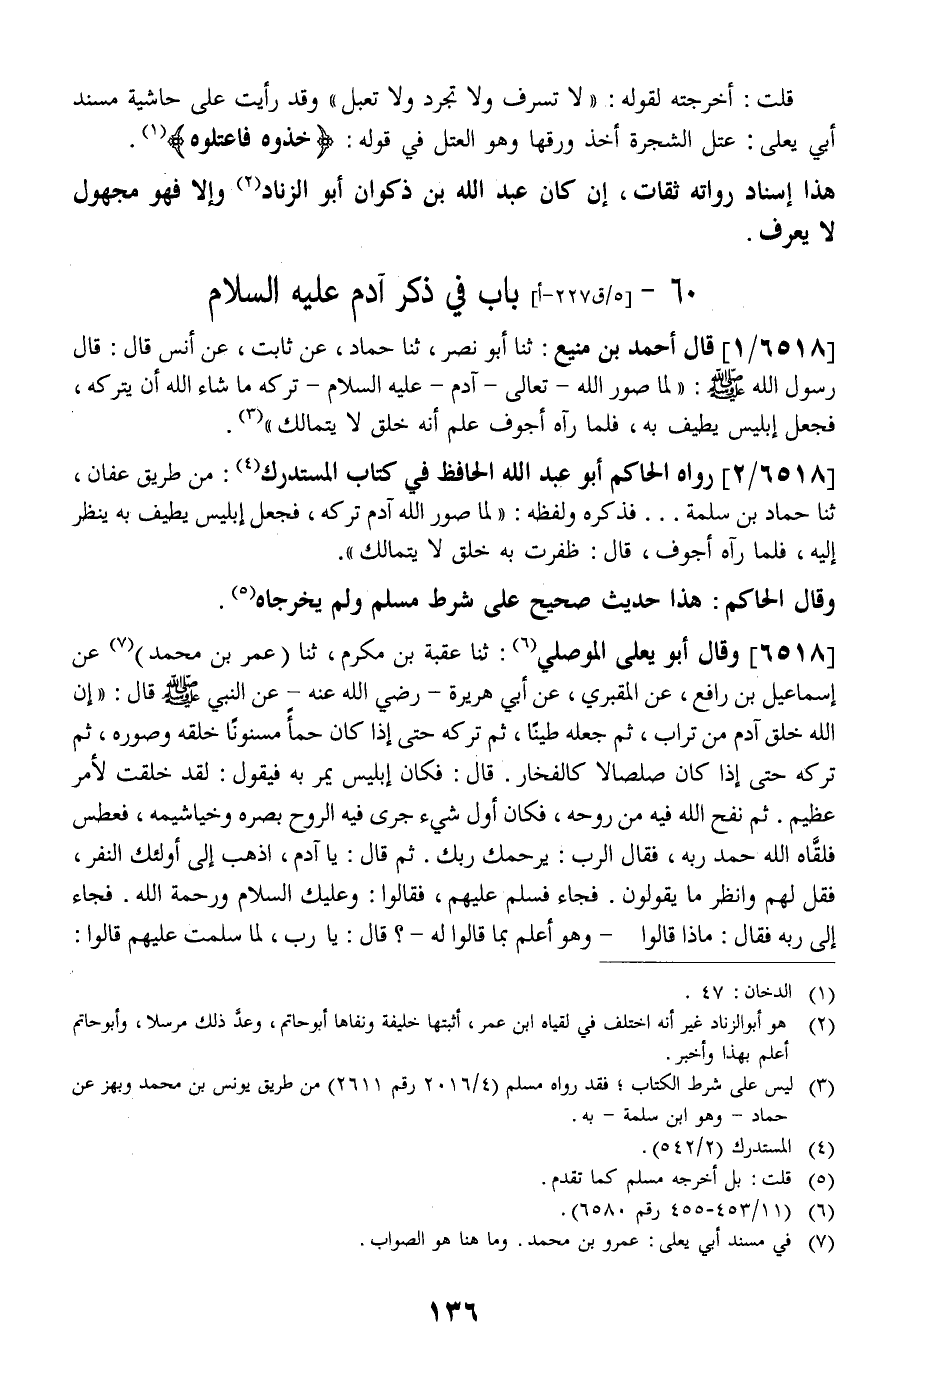 قلت : أخرجته لقوله : « لا تسرف ولا تجرد ولا تعبل » وقد رأيت على حاشية مسند
أبي يعلى : عتل الشجرة أخذ ورقها وهو العتل في قوله : ﴿خذوه فاعتلوه﴾(١) .
هذا إسناد رواته ثقات ، إن كان عبد الله بن ذكوان أبو الزناد(٢) وإلا فهو مجهول
لا يعرف .
٦٠ - [٥/ق٢٢٧-أ] باب في ذكر آدم عليه السلام
[١/٦٥١٨] قال أحمد بن منيع : ثنا أبو نصر ، ثنا حماد ، عن ثابت ، عن أنس قال : قال
رسول الله ﷺ : « لما صور الله - تعالى - آدم - عليه السلام - تركه ما شاء الله أن يتركه ،
فجعل إبليس يطيف به ، فلما رآه أجوف علم أنه خلق لا يتمالك »(٣) .
[٢/٦٥١٨] رواه الحاكم أبو عبد الله الحافظ في كتاب المستدرك(٤) : من طريق عفان ،
ثنا حماد بن سلمة ... فذكره ولفظه : « لما صور الله آدم تركه ، فجعل إبليس يطيف به ينظر
إليه ، فلما رآه أجوف ، قال : ظفرت به خلق لا يتمالك ».
وقال الحاكم : هذا حديث صحيح على شرط مسلم ولم يخرجاه(٥) .
[٦٥١٨] وقال أبو يعلى الموصلي(٦) : ثنا عقبة بن مكرم ، ثنا (عمر بن محمد)(٧) عن
إسماعيل بن رافع ، عن المقبري ، عن أبي هريرة - رضي الله عنه - عن النبي ﷺ قال : « إن
الله خلق آدم من تراب ، ثم جعله طينًا ، ثم تركه حتى إذا كان حمأً مسنونًا خلقه وصوره ، ثم
تركه حتى إذا كان صلصالا كالفخار . قال : فكان إبليس يمر به فيقول : لقد خلقت لأمر
عظيم . ثم نفح الله فيه من روحه ، فكان أول شيء جرى فيه الروح بصره وخياشيمه ، فعطس
فلقَّاه الله حمد ربه ، فقال الرب : يرحمك ربك . ثم قال : يا آدم ، اذهب إلى أولئك النفر ،
فقل لهم وانظر ما يقولون . فجاء فسلم عليهم ، فقالوا : وعليك السلام ورحمة الله . فجاء
إلى ربه فقال : ماذا قالوا - وهو أعلم بما قالوا له - ؟ قال : يا رب ، لما سلمت عليهم قالوا :
(١) الدخان : ٤٧ .
(٢) هو أبوالزناد غير أنه اختلف في لقياه ابن عمر ، أثبتها خليفة ونفاها أبوحاتم ، وعدَّ ذلك مرسلا ، وأبوحاتم
أعلم بهذا وأخبر .
(٣) ليس على شرط الكتاب ؛ فقد رواه مسلم (٢٠١٦/٤ رقم ٢٦١١) من طريق يونس بن محمد وبهز عن
حماد - وهو ابن سلمة - به .
(٤) المستدرك (٥٤٢/٢) .
(٥) قلت : بل أخرجه مسلم كما تقدم .
(٦) (٤٥٣/١١-٤٥٥ رقم ٦٥٨٠) .
(٧) في مسند أبي يعلى : عمرو بن محمد . وما هنا هو الصواب .
١٣٦